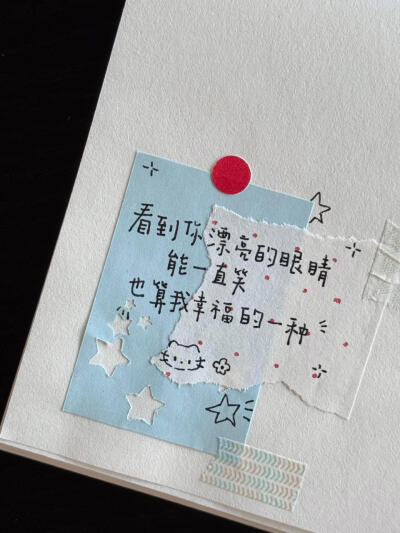 看到你漂亮的眼睛
能一直笑
也算我幸福的一种